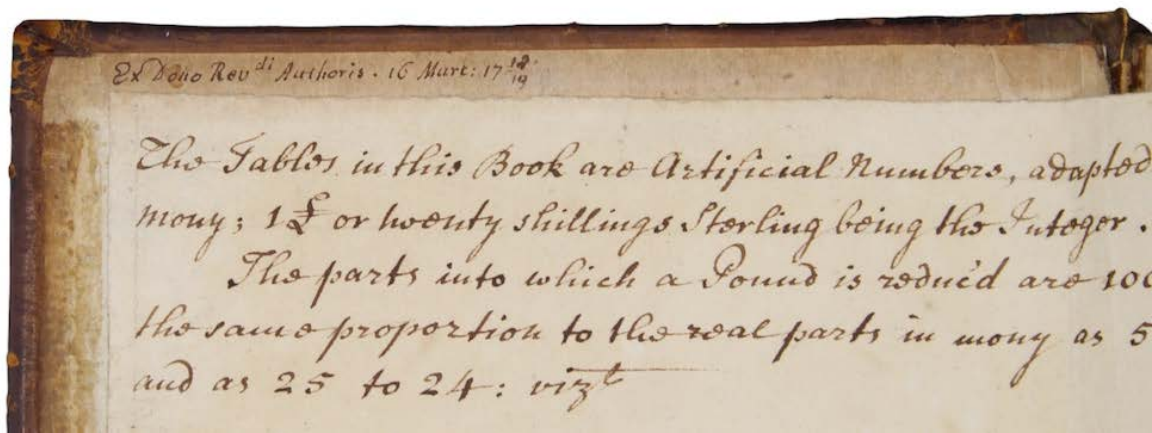 Ex Dono Rev^di Authoris. 16 Mart: 17 18/19
The Tables in this Book are Artificial Numbers, adapted
mony; 1£ or twenty shillings Sterling being the Integer.
The parts into which a Pound is reduc'd are 100
the same proportion to the real parts in mony as 5
and as 25 to 24: viz^t